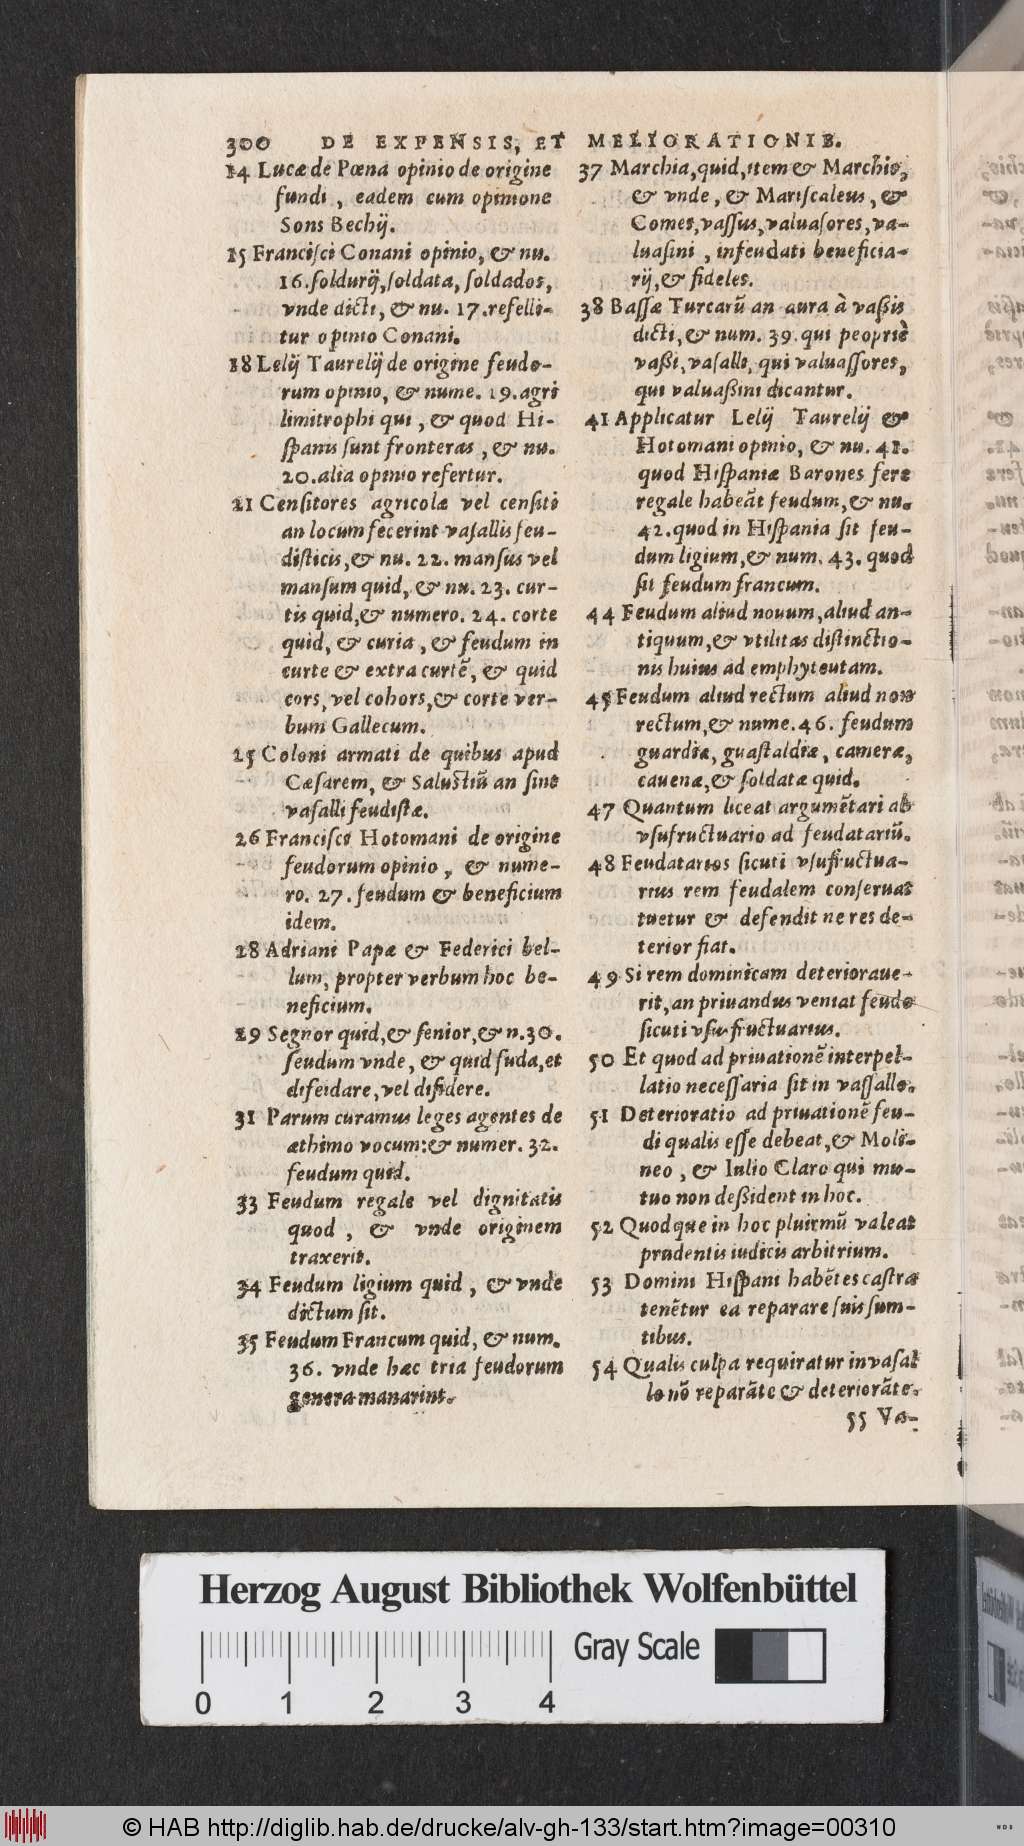 300 DE EXPENSIS, ET MELIORATIONIB.
14 Lucæ de Pœna opinio de origine
fundi, eadem cum opinione
Sons Bechij.
15 Francisci Conani opinio, & nu.
16. soldurij, soldata, soldados,
vnde dicti, & nu. 17. refelli-
tur opinio Conani.
18 Lelij Taurelij de origine feudo-
rum opinio, & nume. 19. agri
limitrophi qui, & quod Hi-
spanis sunt fronteras, & nu.
20. alia opinio refertur.
21 Censitores agricolæ vel censiti
an locum fecerint vasallis feu-
disticis, & nu. 22. mansus vel
mansum quid, & nu. 23. cur-
tis quid, & numero. 24. corte
quid, & curia, & feudum in
curte & extra curtẽ, & quid
cors, vel cohors, & corte ver-
bum Gallecum.
25 Coloni armati de quibus apud
Cæsarem, & Salustiũ an sint
vasalli feudistæ.
26 Francisci Hotomani de origine
feudorum opinio, & nume-
ro. 27. feudum & beneficium
idem.
28 Adriani Papæ & Federici bel-
lum, propter verbum hoc be-
neficium.
29 Segnor quid, & senior, & n. 30.
feudum vnde, & quid fuda, et
difeidare, vel difidere.
31 Parum curamus leges agentes de
æthimo vocum: & numer. 32.
feudum quid.
33 Feudum regale vel dignitatis
quod, & vnde originem
traxerit.
34 Feudum ligium quid, & vnde
dictum sit.
35 Feudum Francum quid, & num.
36. vnde hæc tria feudorum
genera manarint.
37 Marchia, quid, item & Marchio,
& vnde, & Mariscaleus, &
Comes, vassus, valuasores, va-
luasini, infeudati beneficia-
rij, & fideles.
38 Bassæ Turcarũ an aura à vassis
dicti, & num. 39. qui peopriè
vassi, vasalli, qui valuassores,
qui valuassini dicantur.
41 Applicatur Lelij Taurelij &
Hotomani opinio, & nu. 41.
quod Hispaniæ Barones fere
regale habeãt feudum, & nu.
42. quod in Hispania sit feu-
dum ligium, & num. 43. quod
sit feudum francum.
44 Feudum aliud nouum, aliud an-
tiquum, & vtilitas distinctio-
nis huius ad emphyteutam.
45 Feudum aliud rectum aliud non
rectum, & nume. 46. feudum
guardiæ, guastaldiæ, cameræ,
cauenæ, & soldatæ quid.
47 Quantum liceat argumẽtari ab
vsufructuario ad feudatariũ.
48 Feudatarios sicuti vsufructua-
rius rem feudalem conseruat
tuetur & defendit ne res de-
terior fiat.
49 Si rem dominicam deterioraue-
rit, an priuandus veniat feudo
sicuti vsufructuarius.
50 Et quod ad priuationẽ interpel-
latio necessaria sit in vassallo.
51 Deterioratio ad priuationẽ feu-
di qualis esse debeat, & Moli-
neo, & Iulio Claro qui mu-
tuo non dessident in hoc.
52 Quodque in hoc pluirmũ valeat
prudentis iudicis arbitrium.
53 Domini Hispani habẽtes castra
tenẽtur ea reparare suis sum-
tibus.
54 Qualis culpa requiratur in vasal
lo nõ reparãte & deteriorãte.
55 Va-
Herzog August Bibliothek Wolfenbüttel
Gray Scale
0 1 2 3 4
© HAB http://diglib.hab.de/drucke/alv-gh-133/start.htm?image=00310